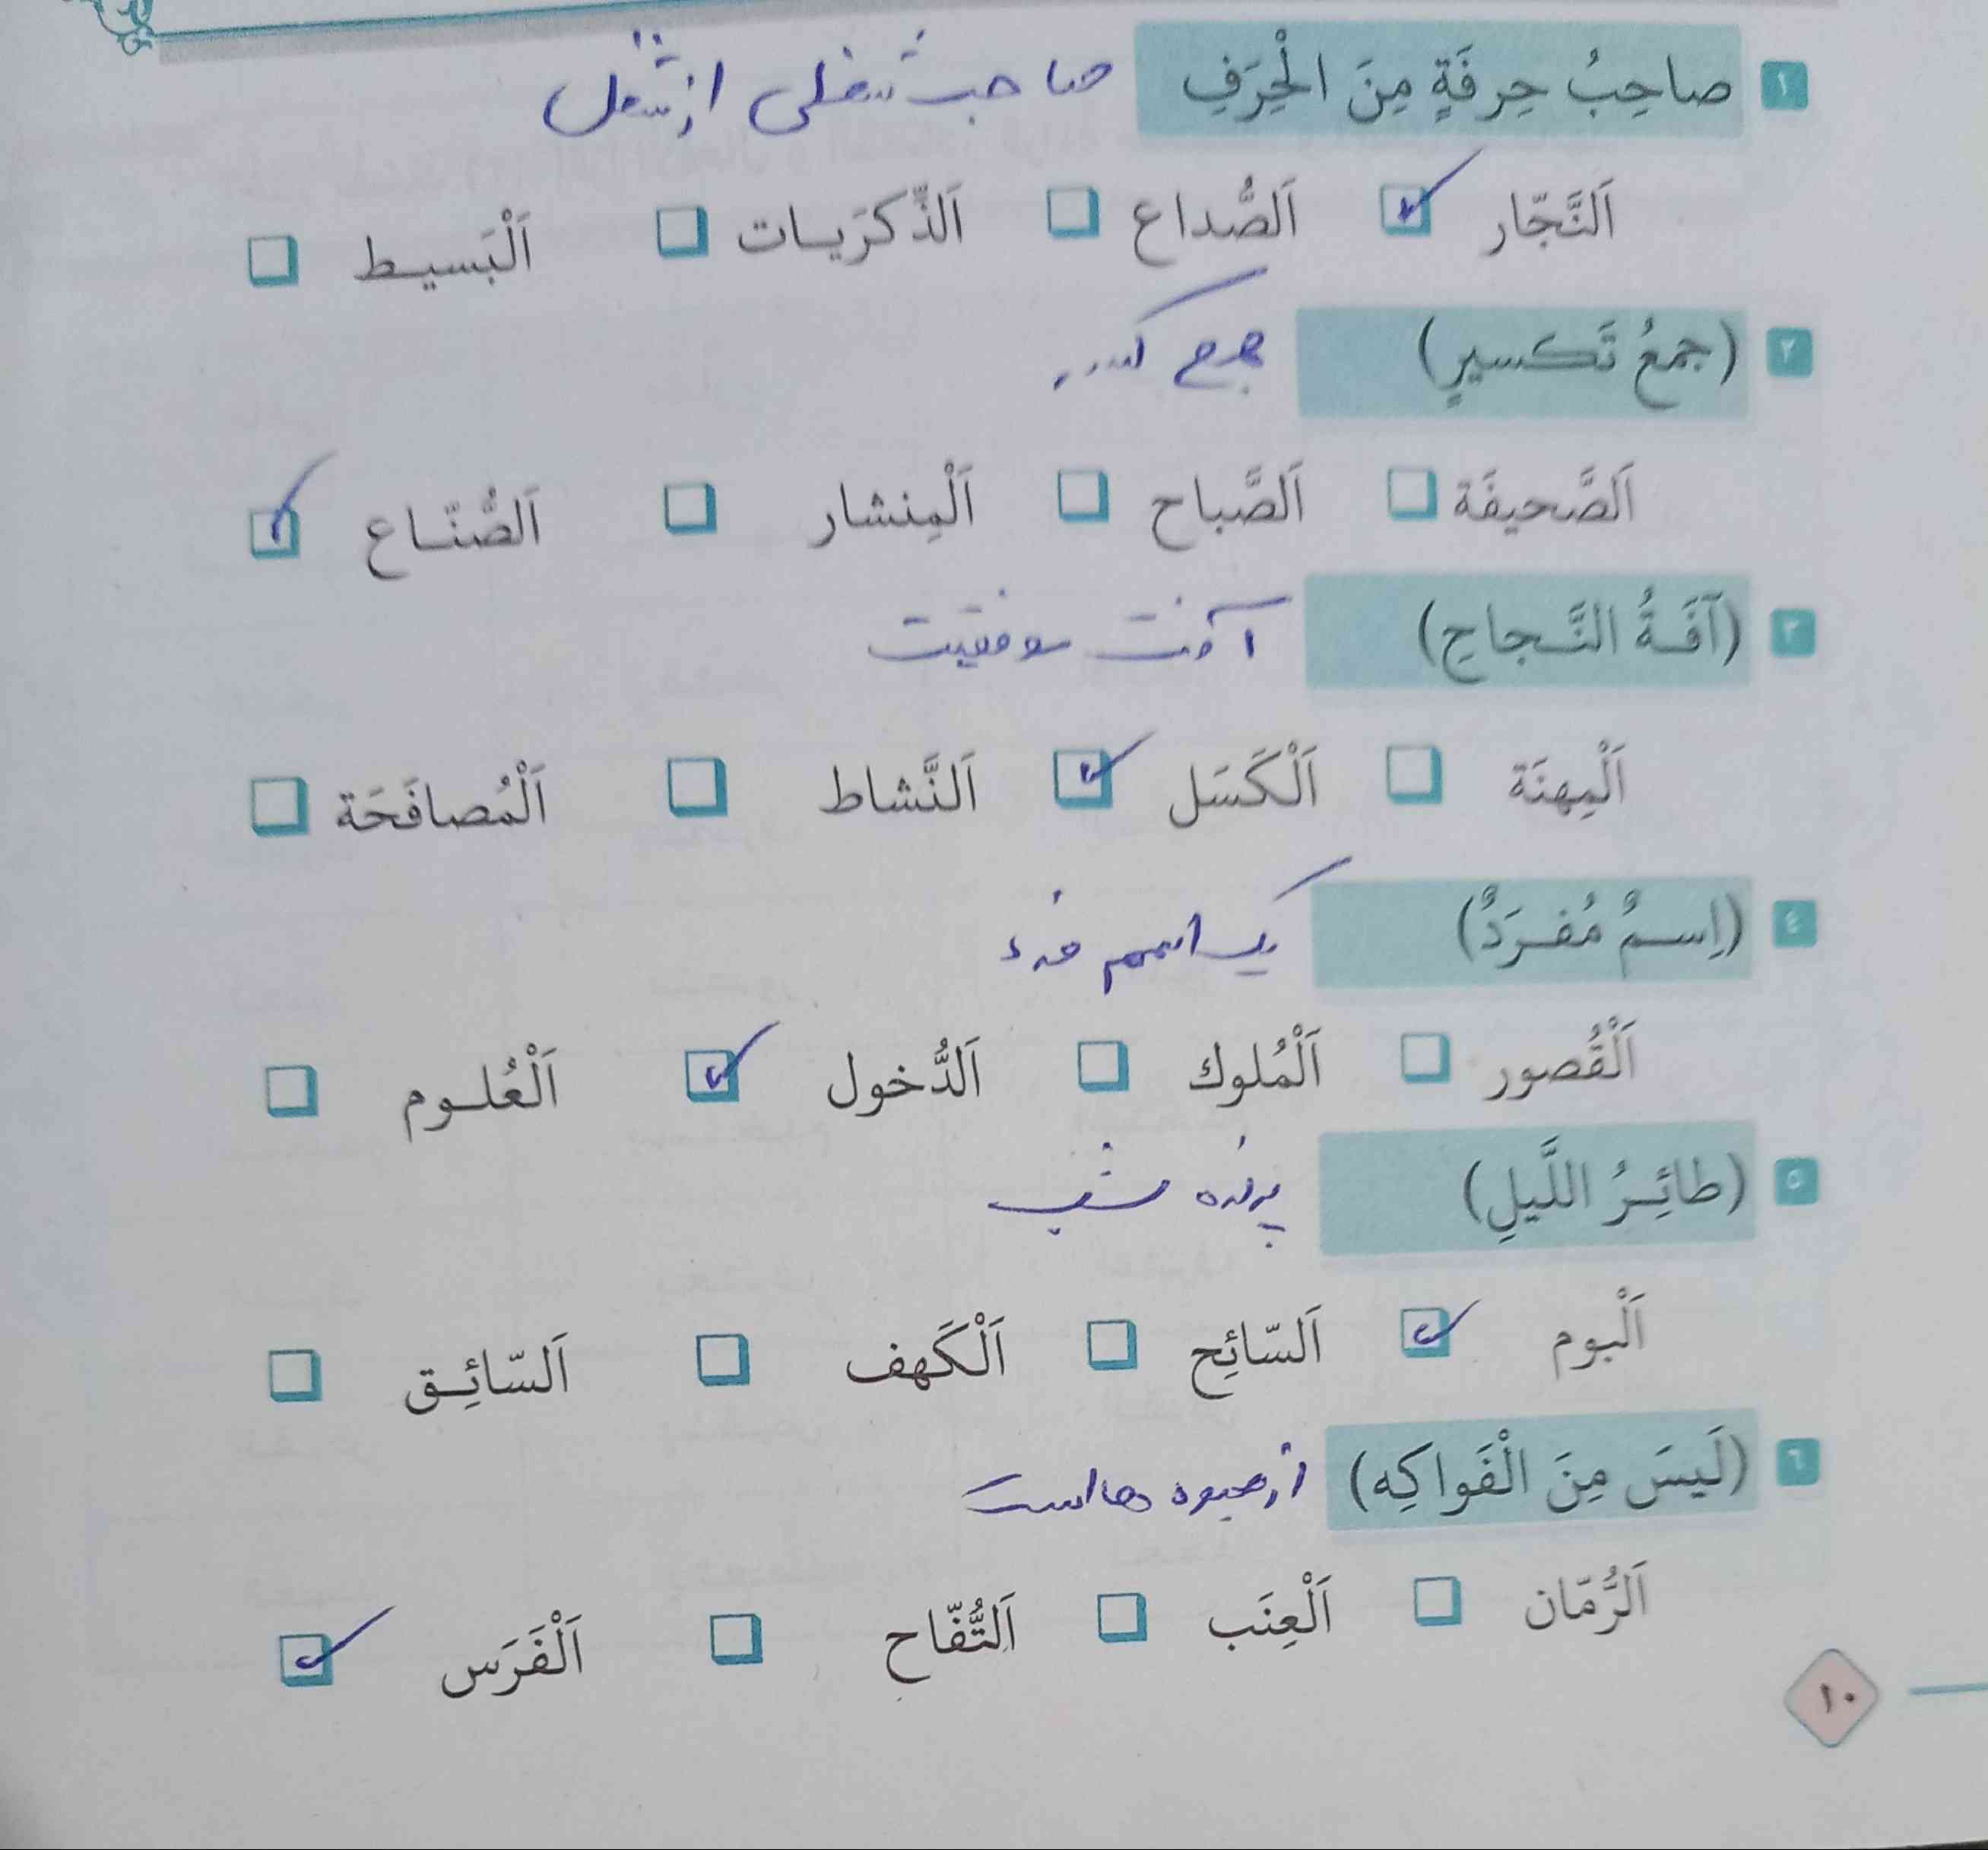 ١ صاحِبُ حِرفَةٍ مِنَ الْحِرَفِ صاحب شغلی از شغل
اَلنَّجّار اَلصُّداع اَلذِّكرَيات اَلْبَسيط
٢ (جمعُ تَكسيرٍ) جمع
اَلصَّحيفَة اَلصَّباح اَلْمِنشار اَلصُّنّاع
٣ (آفَةُ النَّجاحِ) آفت موفقیت
اَلْمِهنَة اَلْكَسَل اَلنَّشاط اَلْمُصافَحَة
٤ (اِسمٌ مُفرَدٌ) یک اسم
اَلْقُصور اَلْمُلوك اَلدُّخول اَلْعُلوم
٥ (طائِرُ اللَّيلِ) پرنده شب
اَلْبوم اَلسّائِح اَلْكَهف اَلسّائِق
٦ (لَيسَ مِنَ الْفَواكِه) از میوه ها است
اَلرُّمّان اَلْعِنَب اَلتُّفّاح اَلْفَرَس
١٠